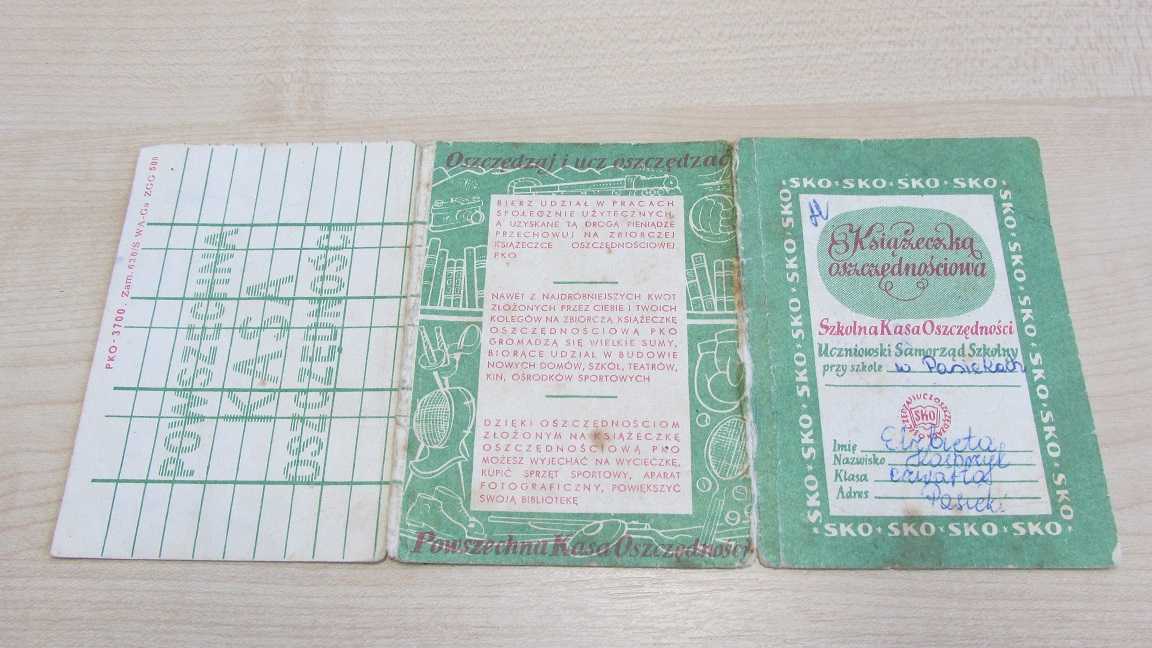 PKO-3700. Zam. 638/S WA-Ga ZGG 500
POWSZECHNA
KASA
OSZCZĘDNOŚCI
Oszczędzaj i ucz oszczędzać
BIERZ UDZIAŁ W PRACACH
SPOŁECZNIE UŻYTECZNYCH,
A UZYSKANE TĄ DROGĄ PIENIĄDZE
PRZECHOWUJ NA ZBIORCZEJ
KSIĄŻECZCE OSZCZĘDNOŚCIOWEJ
PKO
NAWET Z NAJDROBNIEJSZYCH KWOT
ZŁOŻONYCH PRZEZ CIEBIE I TWOICH
KOLEGÓW NA ZBIORCZĄ KSIĄŻECZKĘ
OSZCZĘDNOŚCIOWĄ PKO
GROMADZĄ SIĘ WIELKIE SUMY,
BIORĄCE UDZIAŁ W BUDOWIE
NOWYCH DOMÓW, SZKÓŁ, TEATRÓW,
KIN, OŚRODKÓW SPORTOWYCH
DZIĘKI OSZCZĘDNOŚCIOM
ZŁOŻONYM NA KSIĄŻECZKĘ
OSZCZĘDNOŚCIOWĄ PKO
MOŻESZ WYJECHAĆ NA WYCIECZKĘ,
KUPIĆ SPRZĘT SPORTOWY, APARAT
FOTOGRAFICZNY, POWIĘKSZYĆ
SWOJĄ BIBLIOTEKĘ
Powszechna Kasa Oszczędności
SKO·SKO·SKO·SKO·
SKO·SKO·SKO·SKO·SKO·SKO
SKO·SKO·SKO·SKO·SKO·SKO
Książeczka
oszczędnościowa
Szkolna Kasa Oszczędności
Uczniowski Samorząd Szkolny
przy szkole w Pasiekach
SKO
Imię Elżbieta
Nazwisko Kacprzyk
Klasa czwarta
Adres Pasieki
SKO·SKO·SKO·SKO·